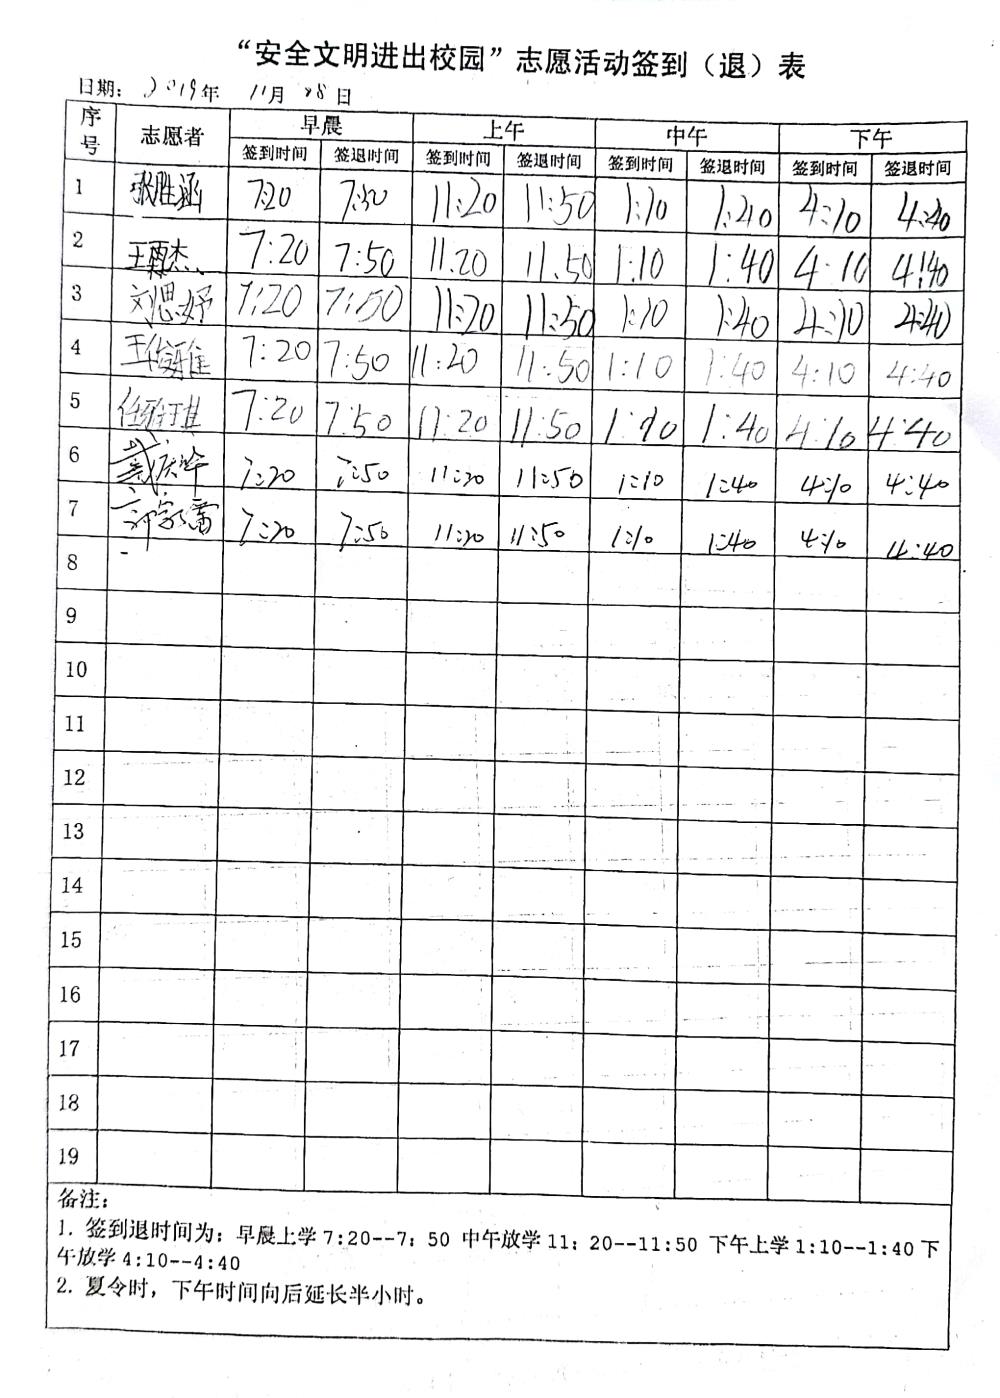 “安全文明进出校园”志愿活动签到（退）表
日期：2019年 11月 28日
序号 志愿者 早晨 上午 中午 下午
签到时间 签退时间 签到时间 签退时间 签到时间 签退时间 签到时间 签退时间
1 张胜涵 7:20 7:50 11:20 11:50 1:10 1:40 4:10 4:40
2 王雨杰 7:20 7:50 11.20 11.50 1:10 1:40 4:10 4:40
3 刘思妤 7:20 7:50 11:20 11:50 1:10 1:40 4:10 4:40
4 7:20 7:50 11:20 11:50 1:10 1:40 4:10 4:40
5 7:20 7:50 11:20 11:50 1:10 1:40 4:10 4:40
6 7:20 7:50 11:20 11:50 1:10 1:40 4:10 4:40
7 7:20 7:50 11:20 11:50 1:10 1:40 4:10 4:40
8
9
10
11
12
13
14
15
16
17
18
19
备注：
1. 签到退时间为：早晨上学 7:20--7：50 中午放学 11：20--11:50 下午上学 1:10--1:40 下
午放学 4:10--4:40
2. 夏令时，下午时间向后延长半小时。